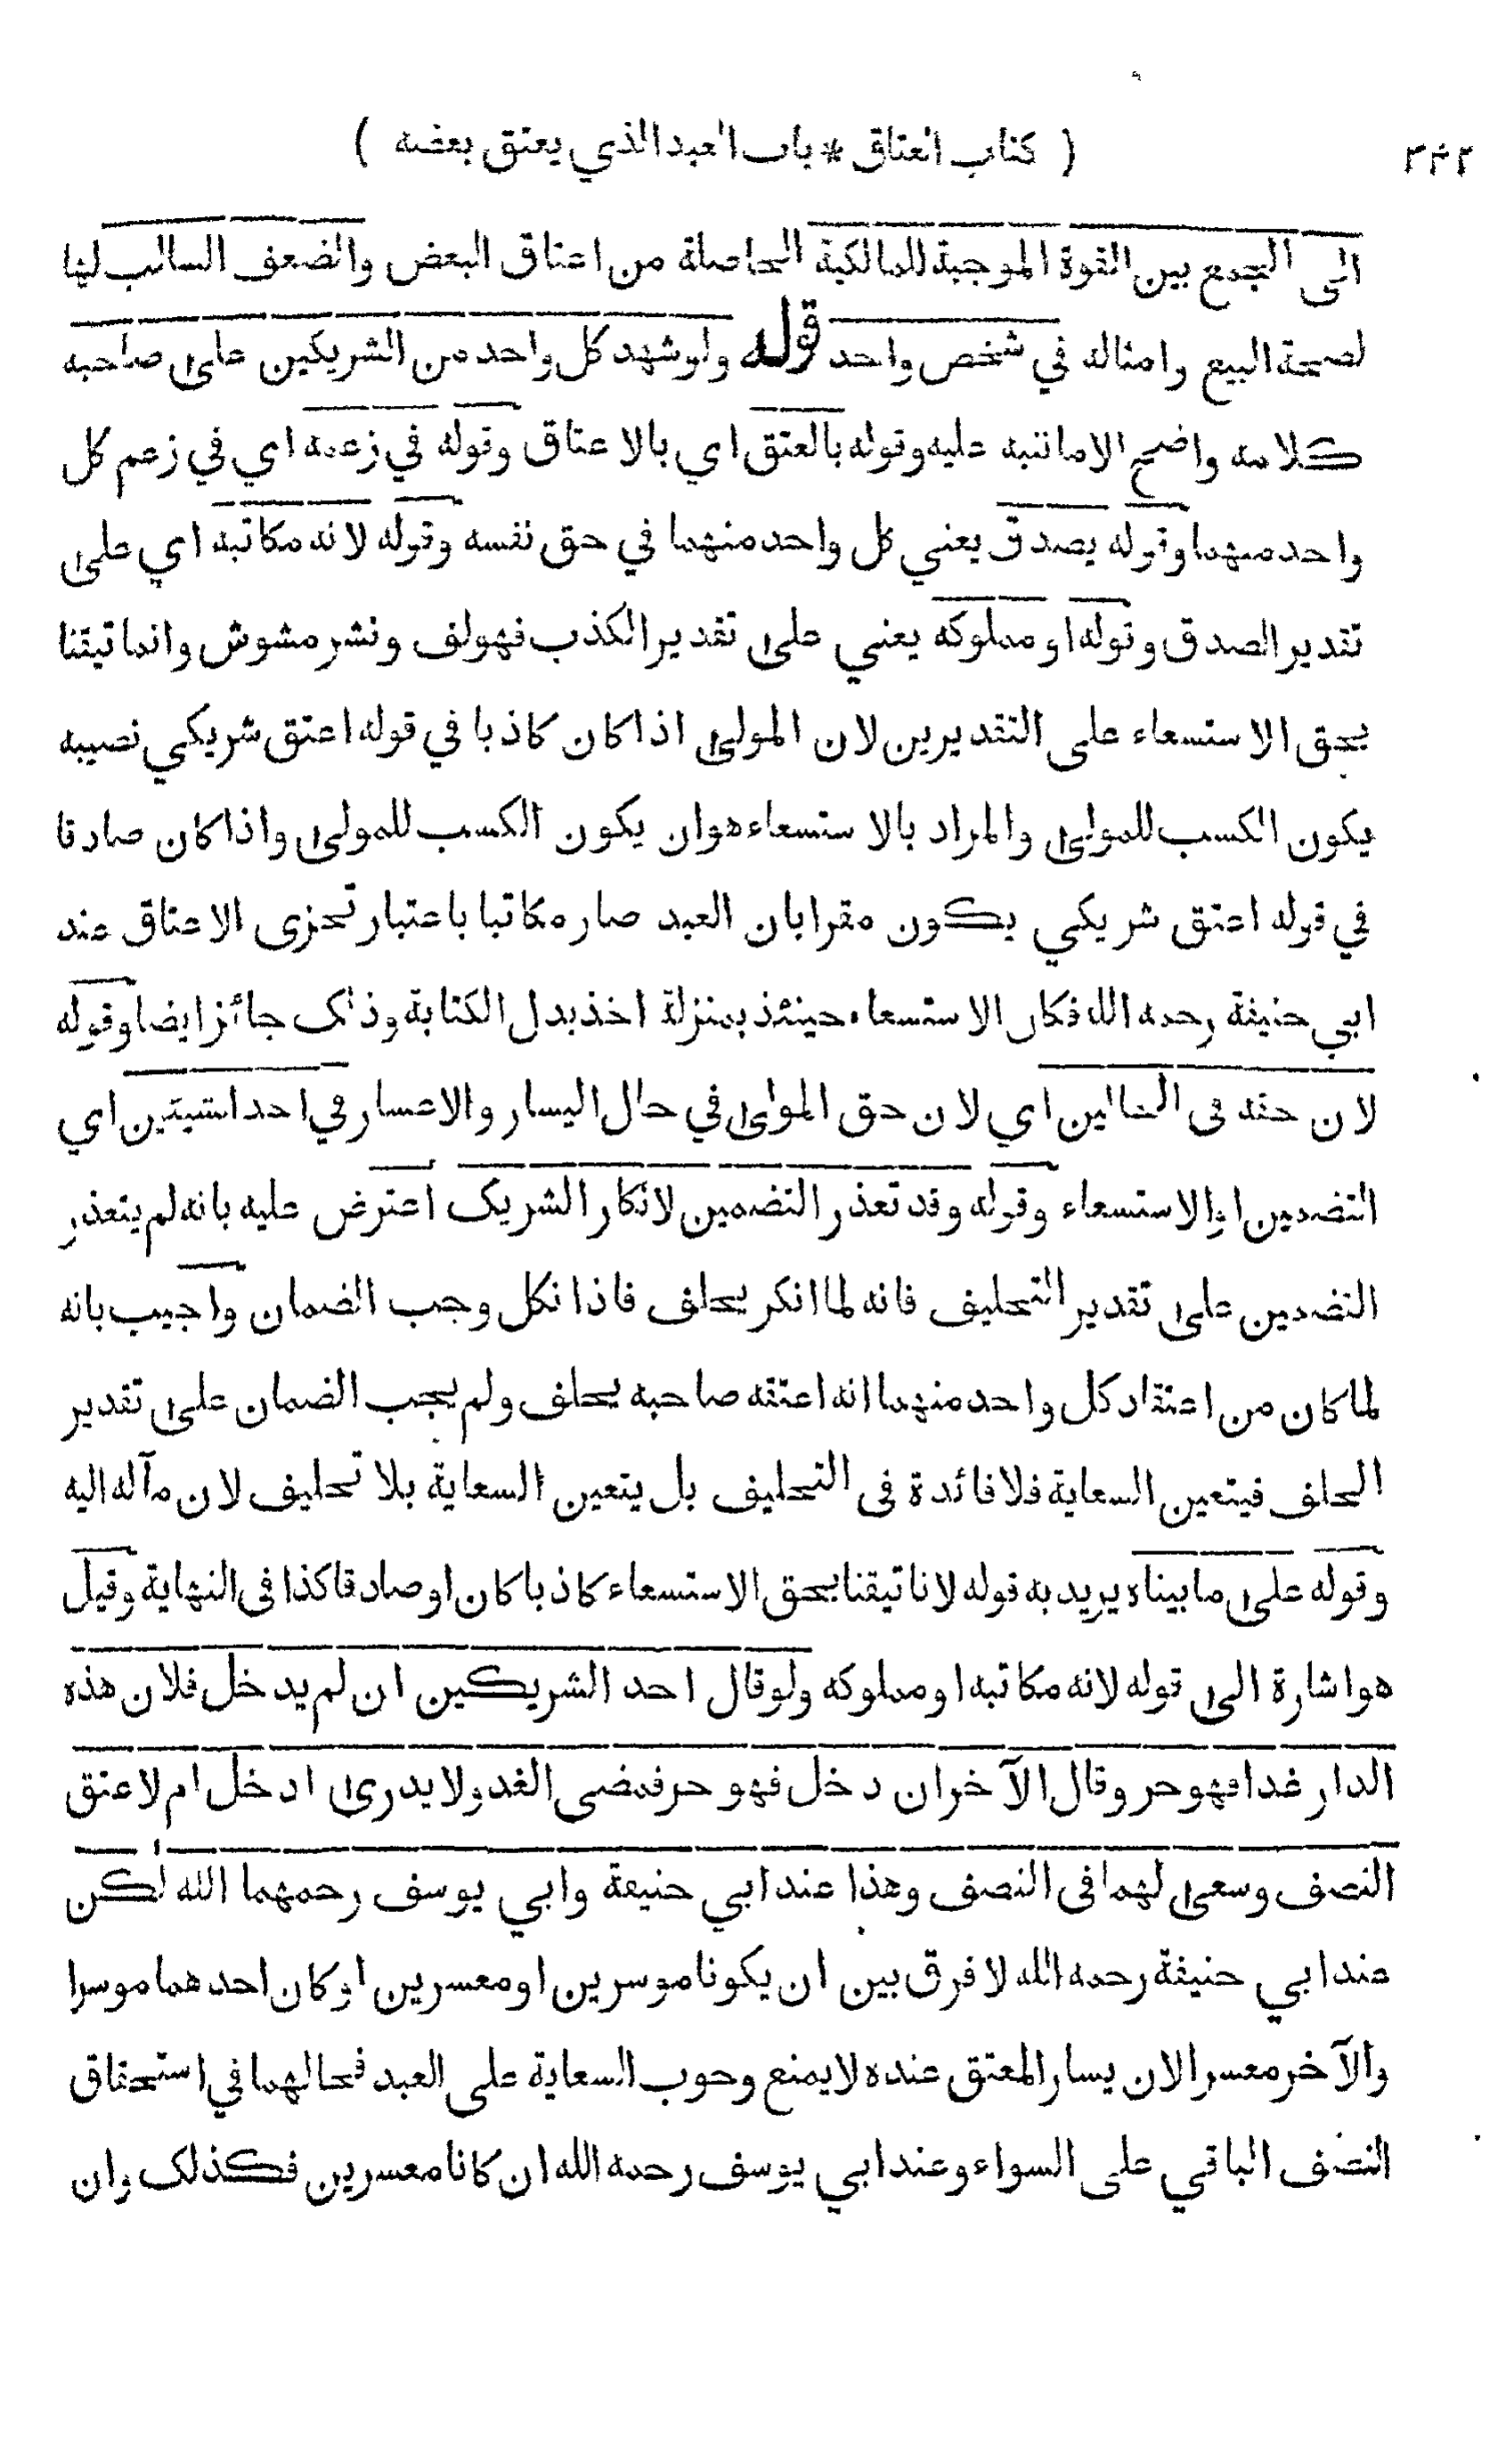 ( كتاب العتاق * باب العبد الذي يعتق بعضه )
الى الجمع بين القوة الموجبة للمالكية الحاصلة من اعتاق البعض والضعف السالب لها
لصحة البيع وامثاله في شخص واحد قوله ولو شهد كل واحد من الشريكين على صاحبه
كلامه واضح الا ما ننبه عليه وقوله بالعتق اي بالاعتاق وقوله في زعمه اي في زعم كل
واحد منهما وقوله يصدق يعني كل واحد منهما في حق نفسه وقوله لانه مكاتبه اي على
تقدير الصدق وقوله او مملوكه يعني على تقدير الكذب فهو لف ونشر مشوش وانما تيقنا
بحق الاستسعاء على التقديرين لان المولى اذا كان كاذبا في قوله اعتق شريكي نصيبه
يكون الكسب للمولى والمراد بالاستسعاء هو ان يكون الكسب للمولى واذا كان صادقا
في قوله اعتق شريكي يكون مقرا بان العبد صار مكاتبا باعتبار تجزى الاعتاق عند
ابي حنيفة رحمه الله فكان الاستسعاء حينئذ بمنزلة اخذ بدل الكتابة وذلك جائز ايضا وقوله
لان حقه في الحالين اي لان حق المولى في حال اليسار والاعسار في احد الشيئين اي
التضمين او الاستسعاء وقوله وقد تعذر التضمين لانكار الشريك اعترض عليه بانه لم يتعذر
التضمين على تقدير التحليف فانه لما انكر يحلف فاذا نكل وجب الضمان واجيب بانه
لما كان من اعتقاد كل واحد منهما انه اعتقه صاحبه يحلف ولم يجب الضمان على تقدير
الحلف فيتعين السعاية فلا فائدة في التحليف بل يتعين السعاية بلا تحليف لان مآله اليه
وقوله على ما بيناه يريد به قوله لانا تيقنا بحق الاستسعاء كاذبا كان او صادقا كذا في النهاية وقيل
هو اشارة الى قوله لانه مكاتبه او مملوكه ولو قال احد الشريكين ان لم يدخل فلان هذه
الدار غدا فهو حر وقال الآخر ان دخل فهو حر فمضى الغد ولا يدرى ا دخل ام لا عتق
النصف وسعى لهما في النصف وهذا عند ابي حنيفة وابي يوسف رحمهما الله لكن
عند ابي حنيفة رحمه الله لا فرق بين ان يكونا موسرين او معسرين او كان احدهما موسرا
والآخر معسرا لان يسار المعتق عنده لا يمنع وجوب السعاية على العبد فحالهما في استحقاق
النصف الباقي على السواء وعند ابي يوسف رحمه الله ان كانا معسرين فكذلك وان